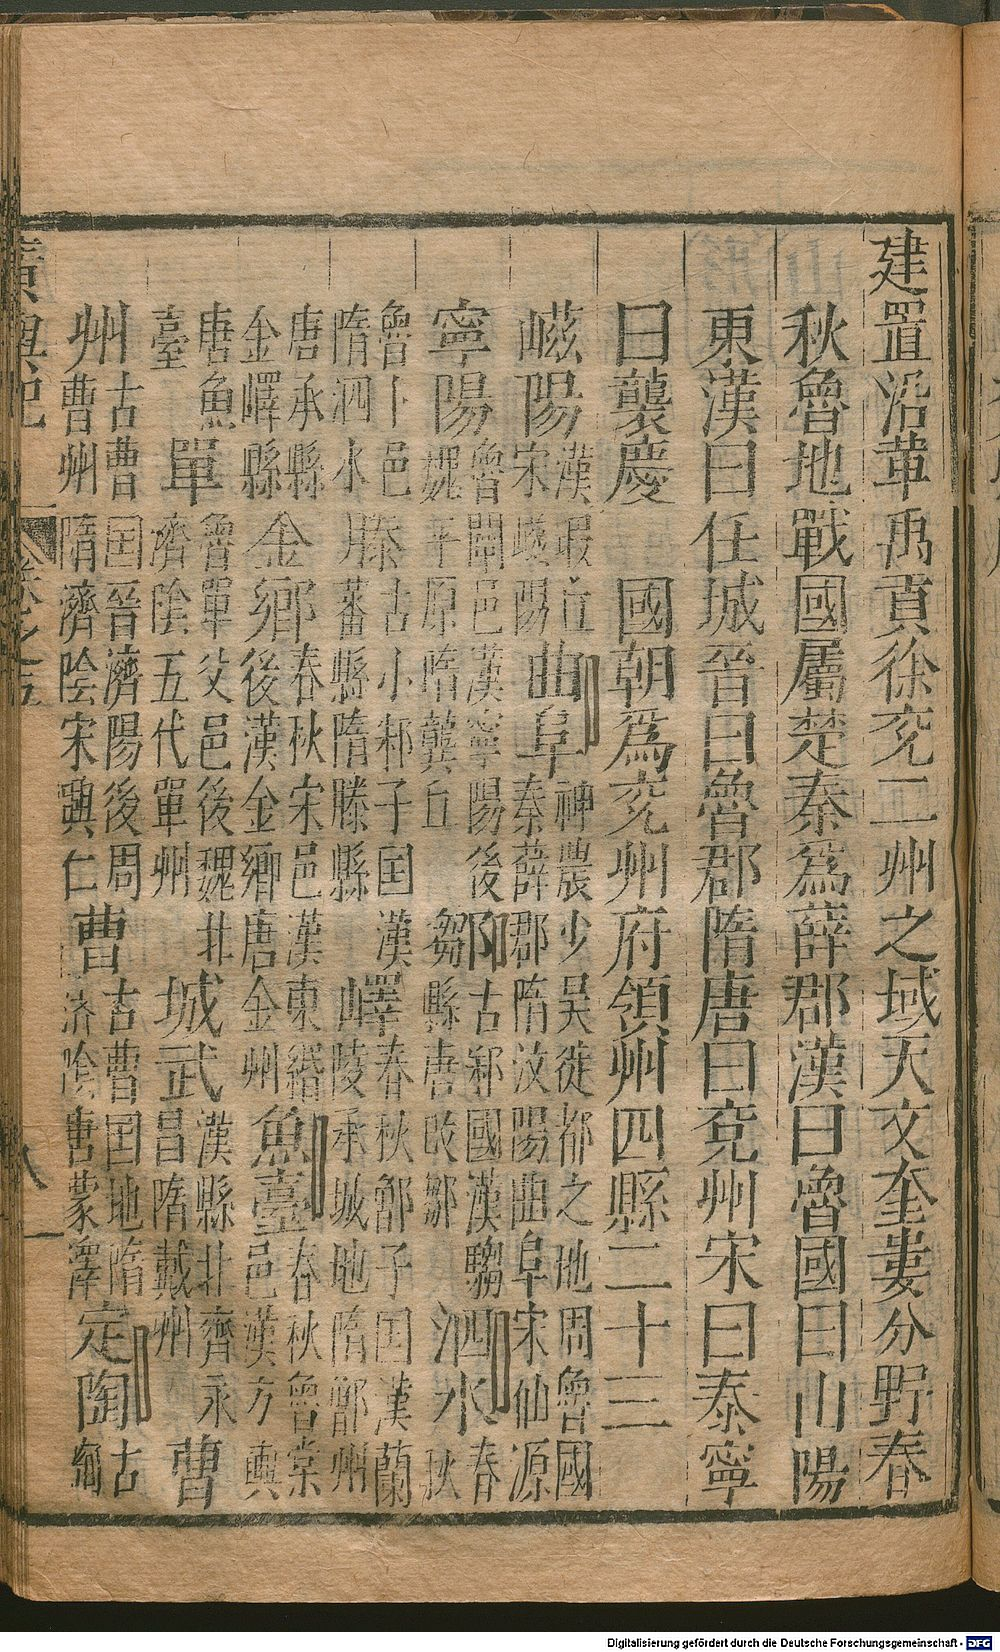 建置沿革禹貢徐兖二州之域天文奎婁分野春
秋魯地戰國屬楚秦爲薛郡漢曰魯國曰山陽
東漢曰任城晉曰魯郡隋唐曰兗州宋曰泰寧
曰襲慶 國朝爲兖州府領州四縣二十三
嵫陽 漢瑕丘 宋嵫陽 曲阜 神農少昊徙都之地周魯國 秦薛郡隋汶陽曲阜宋仙源
寧陽 魯闡邑漢寧陽後 魏平原隋龔丘 鄒 古邾國漢騶 縣唐改鄒 泗水 春秋
魯卞邑 隋泗水 滕 古小邾子国 漢 蕃縣隋滕縣 嶧 春秋鄫子国漢蘭 陵承城地隋鄫州
唐承縣 金嶧縣 金鄉 春秋宋邑漢東緡 後漢金鄉唐金州 魚臺 春秋魯棠 邑漢方輿
唐魚臺 單 魯單父邑後魏北 濟陰五代單州 城武 漢縣北齊永 昌隋戴州 曹
州 古曹国晉濟陽後周 曹州隋濟陰宋興仁 曹 古曹国地隋 济陰唐蒙澤 定陶 古
廣輿記 卷之五 八
Digitalisierung gefördert durch die Deutsche Forschungsgemeinschaft - DFG